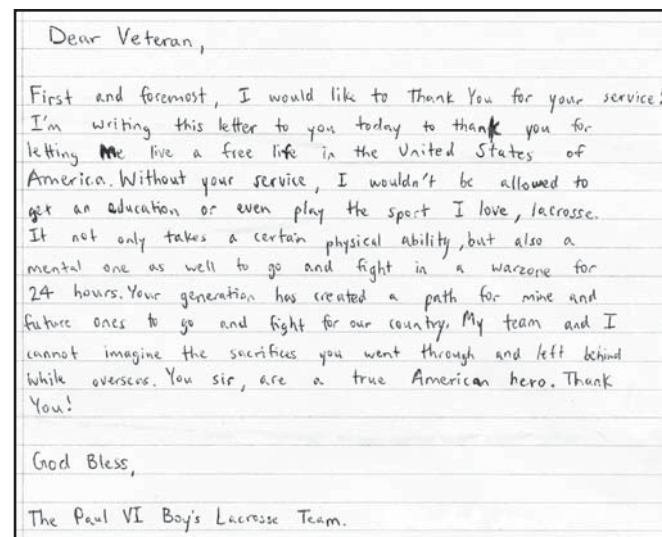 Dear Veteran,
First and foremost, I would like to Thank You for your service!
I'm writing this letter to you today to thank you for
letting me live a free life in the United States of
America. Without your service, I wouldn't be allowed to
get an education or even play the sport I love, lacrosse.
It not only takes a certain physical ability, but also a
mental one as well to go and fight in a warzone for
24 hours. Your generation has created a path for mine and
future ones to go and fight for our country. My team and I
cannot imagine the sacrifices you went through and left behind
while overseas. You sir, are a true American hero. Thank
You!
God Bless,
The Paul VI Boy's Lacrosse Team.